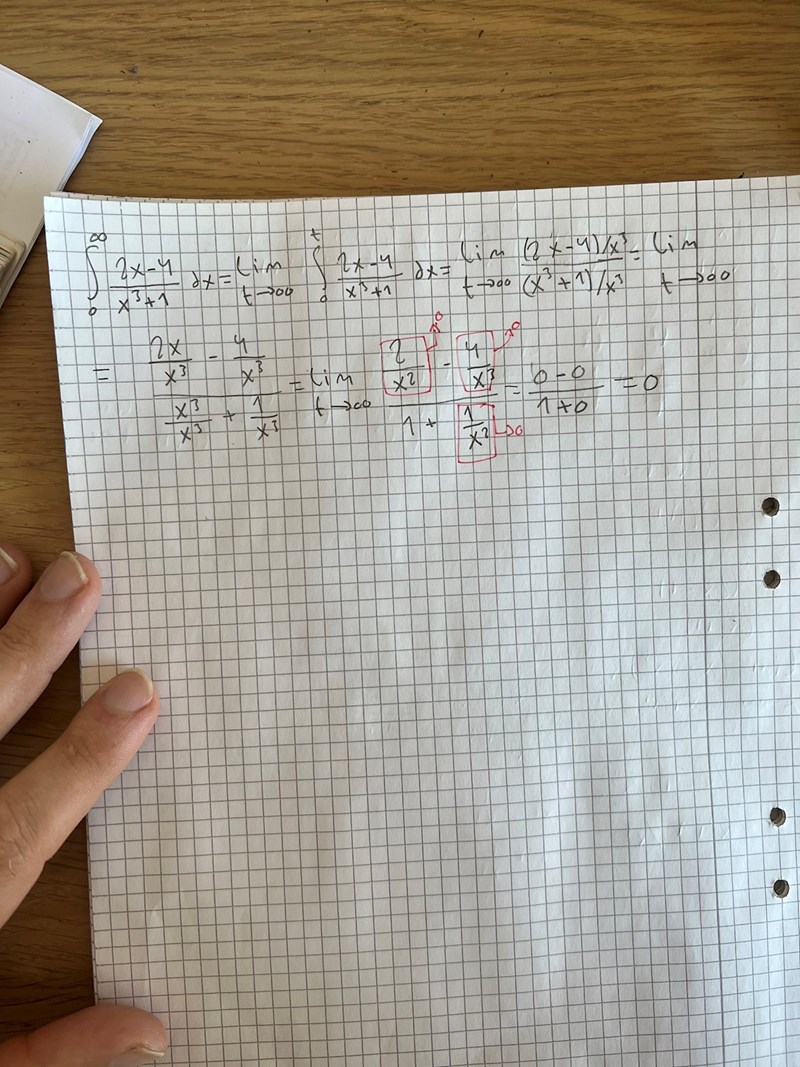 ∫₀^∞ (2x-4)/(x³+1) dx = lim_{t→∞} ∫₀^t (2x-4)/(x³+1) dx = lim_{t→∞} ((2x-4)/x³)/((x³+1)/x³) = lim_{t→∞}
= (2x/x³ - 4/x³)/(x³/x³ + 1/x³) = lim_{t→∞} (2/x² →0 - 4/x³ →0)/(1 + 1/x² →0) = (0-0)/(1+0) = 0